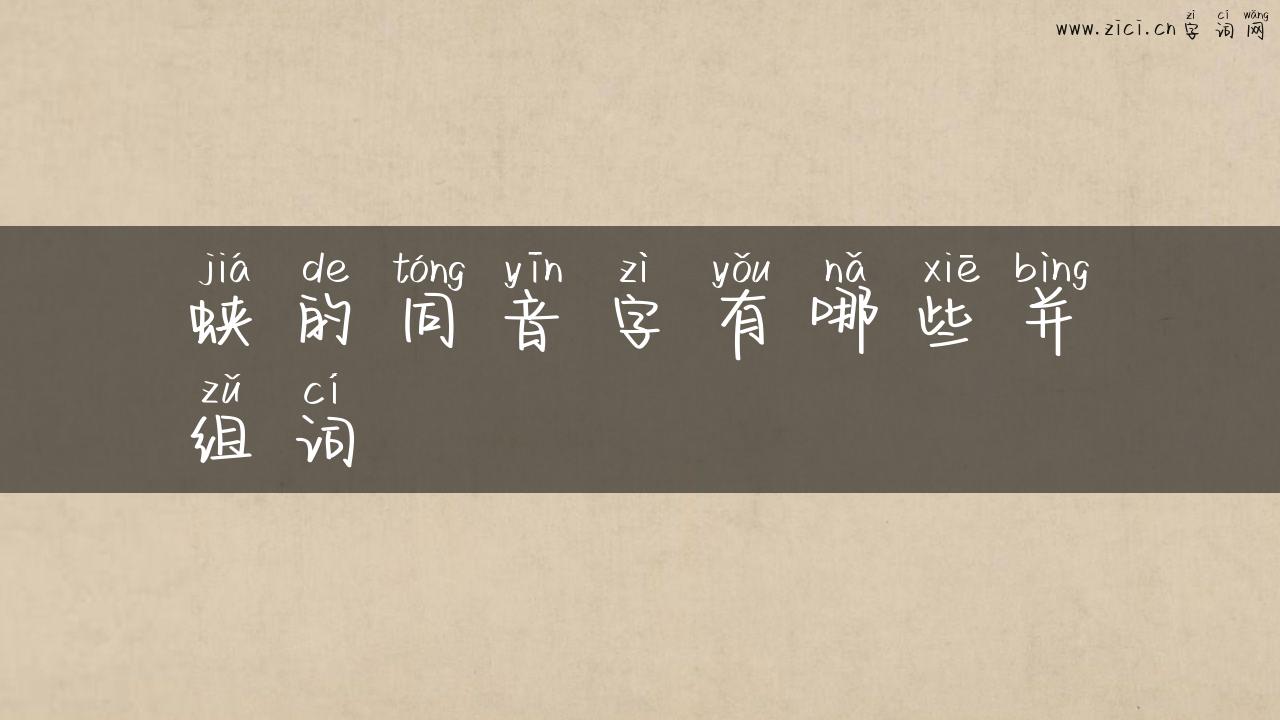 zì cí wǎng
www.zici.cn字词网
jiá de tóng yīn zì yǒu nǎ xiē bìng
蛱的同音字有哪些并
zǔ cí
组词